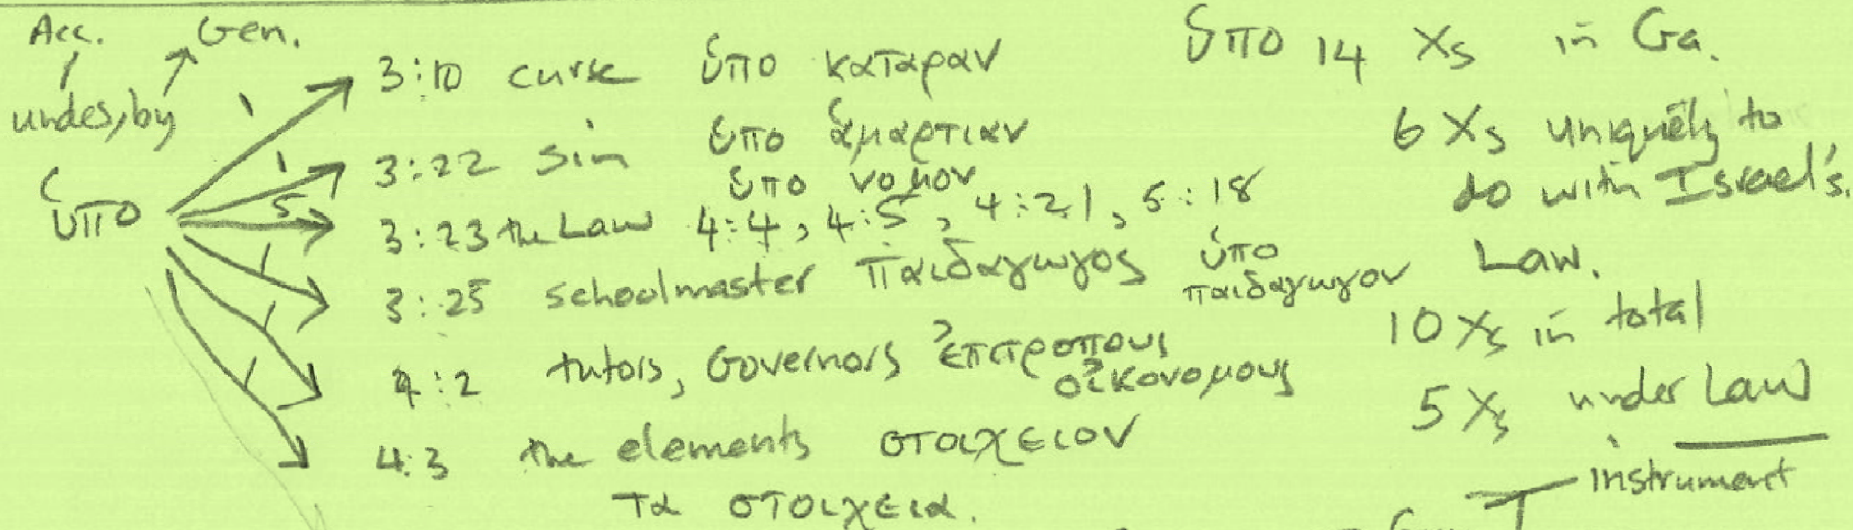 Acc. Gen.
under, by
ὑπο
1 3:10 curse ὑπο καταραν
1 3:22 sin ὑπο ἁμαρτιαν
ὑπο νομον
5 3:23 the Law 4:4, 4:5, 4:21, 5:18
1 3:25 schoolmaster παιδαγωγος ὑπο
παιδαγωγον
1 4:2 tutors, Governors ἐπιτροπους
οἰκονομους
1 4:3 the elements στοιχειον
τα στοιχεια.
ὑπο 14 Xs in Ga.
6 Xs uniquely to
do with Israel's.
Law.
10 Xs in total
5 Xs under Law
instrument